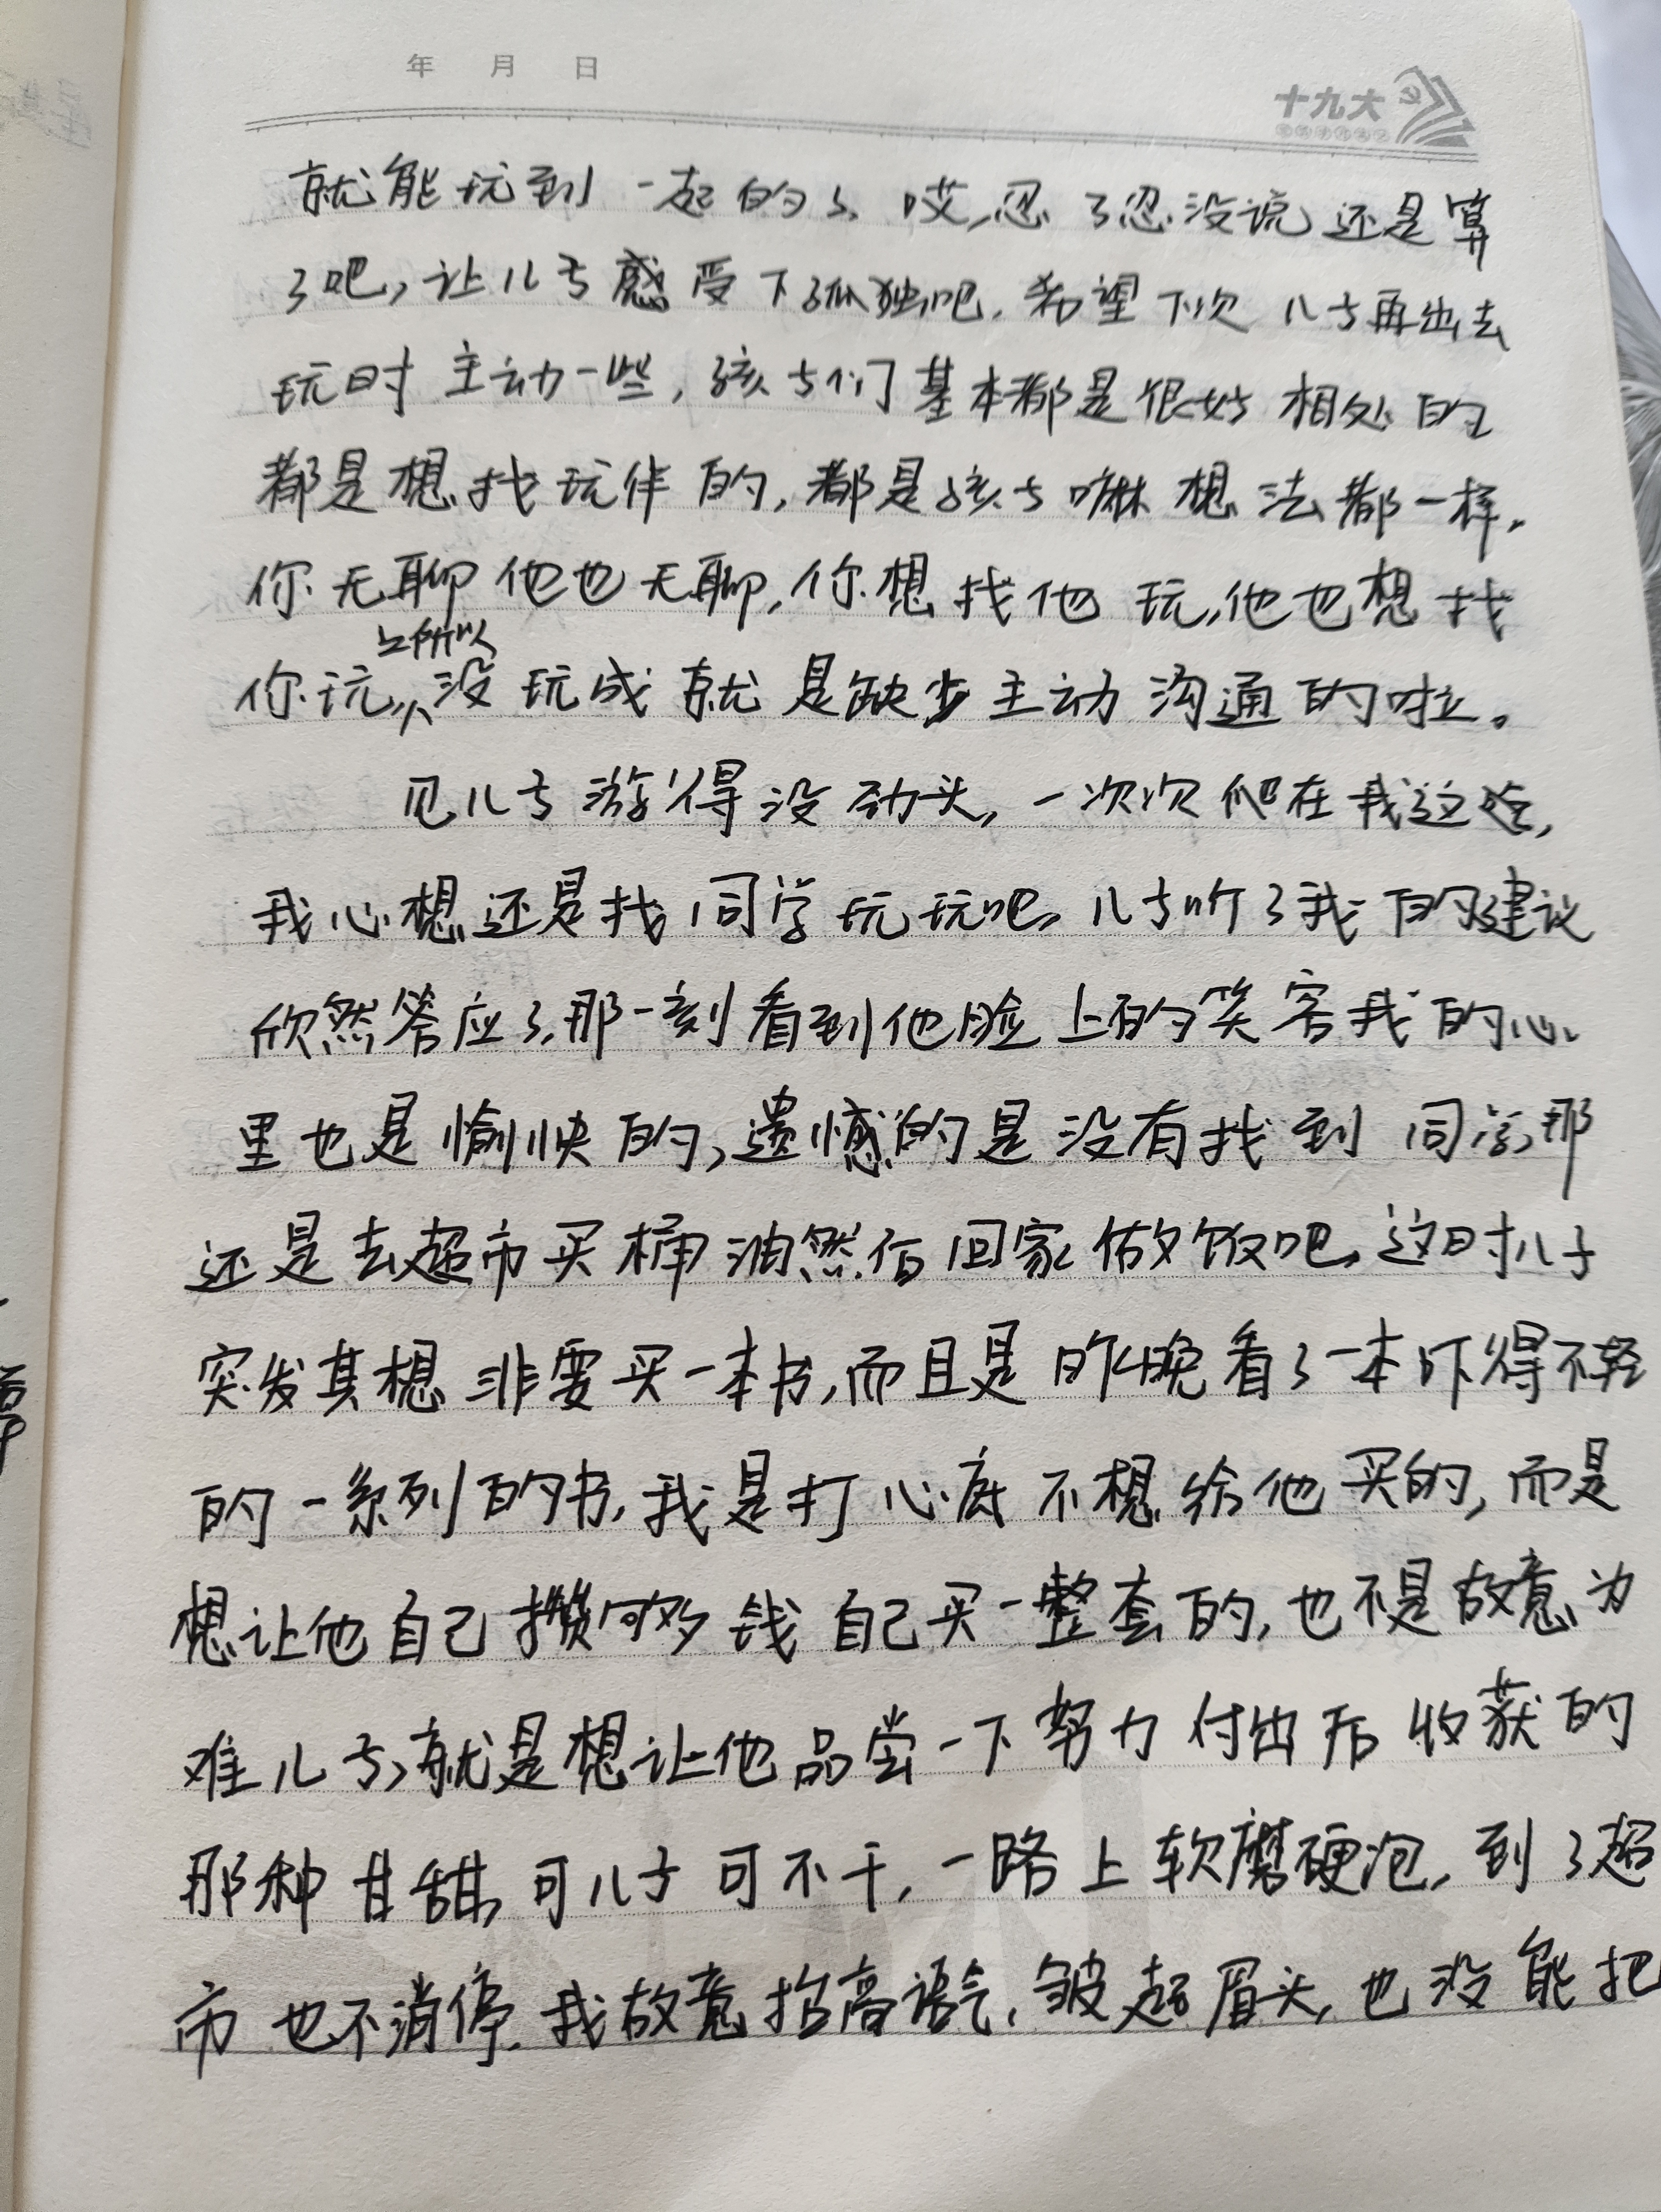 年 月 日
十九大
就能玩到一起的了、哎,忍了忍没说还是算
了吧,让儿子感受下孤独吧,希望下次儿子再出去
玩时主动一些,孩子们基本都是很好相处的
都是想找玩伴的,都是孩子嘛想法都一样。
你无聊他也无聊,你想找他玩,他也想找
之所以
你玩,没玩成就是缺少主动沟通的啦。
见儿子游得没劲头,一次次爬在我这边,
我心想还是找同学玩玩吧,儿子听了我的建议
欣然答应了,那一刻看到他脸上的笑容我的心
里也是愉快的,遗憾的是没有找到同学,那
还是去超市买桶油然后回家做饭吧,这时儿子
突发其想非要买一本书,而且是昨晚看了一本吓得不轻
的一系列的书,我是打心底不想给他买的,而是
想让他自己攒够钱自己买一整套的,也不是故意为
难儿子,就是想让他品尝一下努力付出后收获的
那种甘甜,可儿子可不干,一路上软磨硬泡,到了超
市也不消停.我故意抬高语气,皱起眉头,也没能把